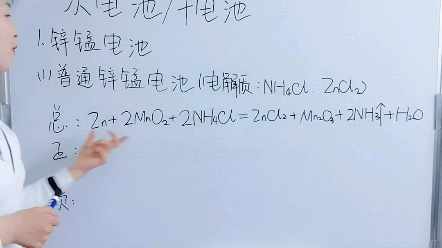 次电池/干电池
1.锌锰电池
(1)普通锌锰电池(电解质:NH4Cl ZnCl2)
总:Zn+2MnO2+2NH4Cl=ZnCl2+Mn2O3+2NH3↑+H2O
正:
负: